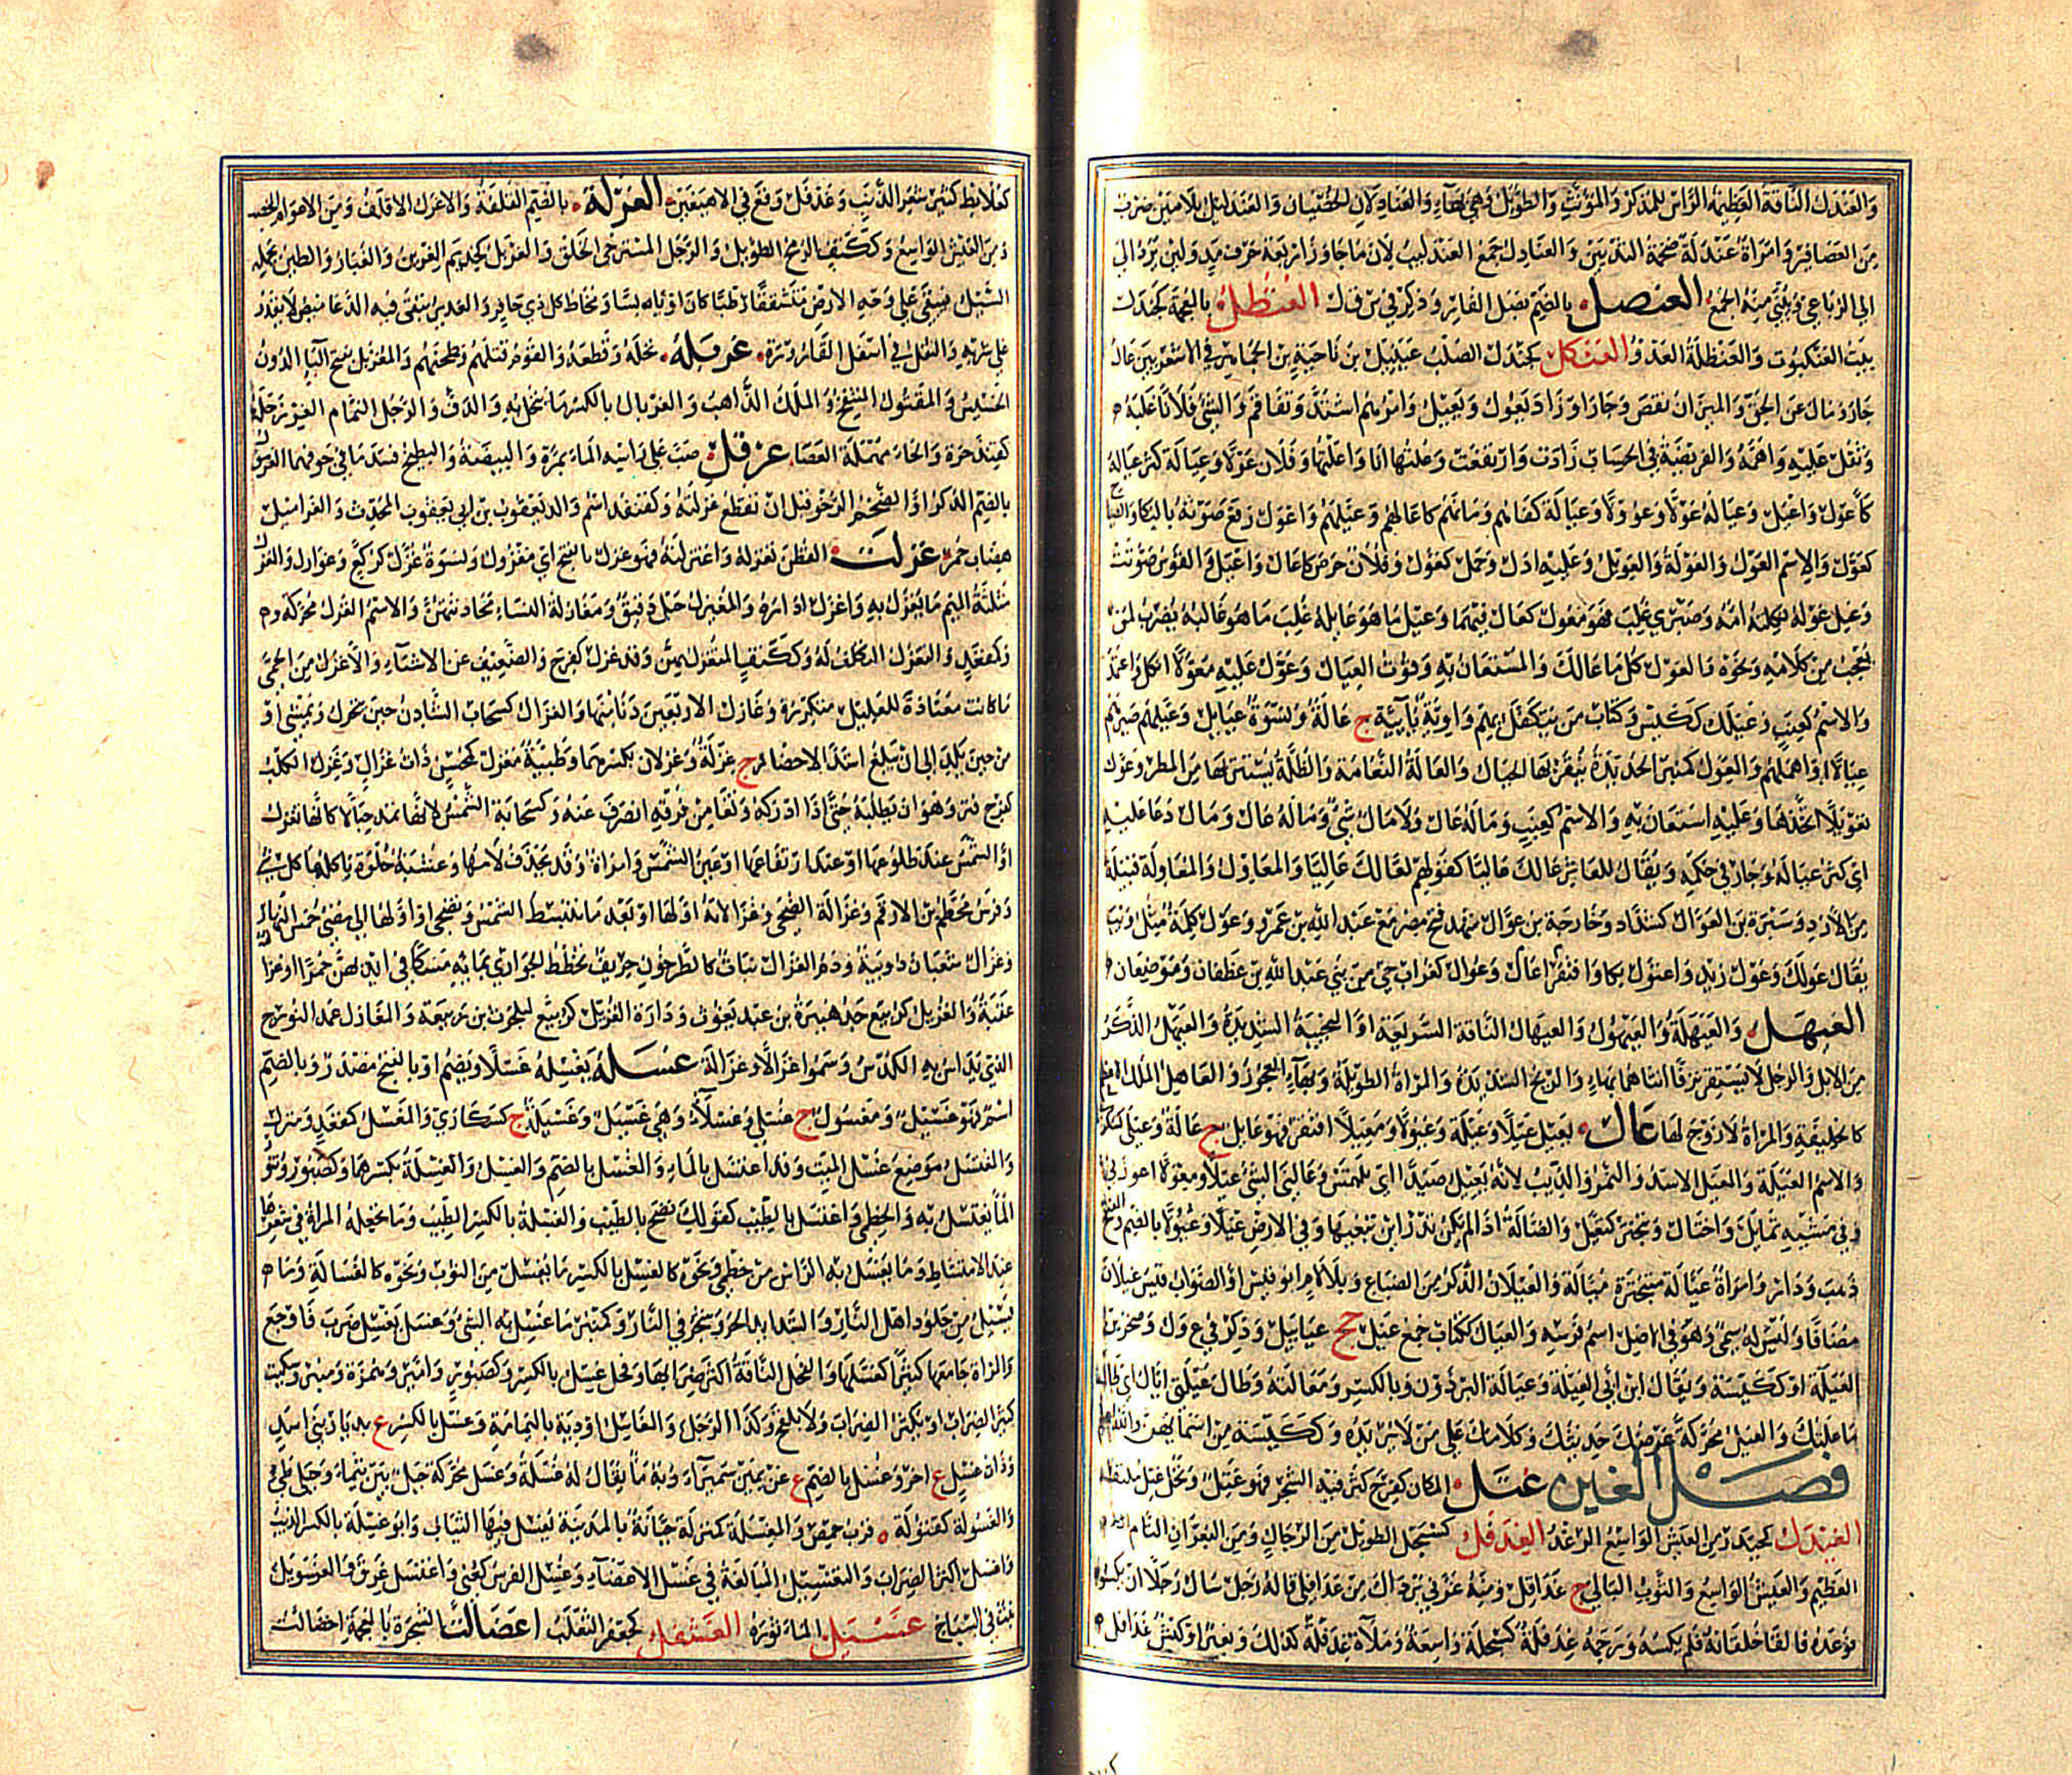 والعندل الناقة العظيمة الرأس للمذكر والمؤنث والطويل وهي بهاء والعنادلان الخصيتان والعندليل بلامين ضرب
من العصافير وامرأة عندلة ضخمة الثديين والعنادل جمع العندليب لان ما جاوز أربعة حرف مد ولين يرد الى
الى الرباعي ويبنى منه الجمع العنصل بالضم بصل الفار وذكر في ص ل العنظل بالعجمة كجندل
بيت العنكبوت والعنظلة العدو العنكل كجندل الصلب عنبيل بن ناجية بن الجماهر في الاشعريين عال
جار ومال عن الحق والميزان نقص وجار او زاد يعول ويعيل وامرهم اشتد وتفاقم والشئ فلانا غلبه
وثقل عليه واهمه والفريضة في الحساب زادت وارتفعت وعلتها انا واعلتها وفلان عولا وعيالة كثر عياله
كاعول واعيل وعياله عولا وعؤولا وعيالة كفاهم ومانهم كاعالهم وعيلهم واعول رفع صوته بالبكاء والصياح
كعول والاسم العول والعولة والعويل وعليه ادل وحمل كعول وفلان حرص كاعال واعيل والقوس صوتت
وعيل عوله ثكلته امه وصبري غلب فهو معول كعال فيهما وعيل ما هو عائله غلب ما هو غالبه يضرب لمن
يعجب من كلامه ونحوه والعول كل ما عالك والمستعان به وقوت العيال وعول عليه معولا اتكل واعتمد
والاسم كعنب وعيلك ككيس وكتاب من يتكفل بهم واوية يائية ج عالة ونسوة عيايل وعيلهم صيرهم
عيالا او اهملهم والمعول كمنبر الحديدة ينقر بها الجبال والعالة النعامة والظلة يستتر بها من المطر وعول
تعويلا اتخذها وعليه استعان به والاسم كعنب وما له عال ولا مال شئ وما له عال ومال دعاء عليه
اي كثر عياله وجار في حكمه ويقال للعاثر عالك عاليا كقولهم لعا لك عاليا والمعاول والمعاولة قبيلة
من الازد وسبرة بن العوال كشداد وخارجة بن عوال شهد فتح مصر مع عبد الله بن عمرو وعول كلمة مثل ويب
يقال عولك وعول زيد واعتول بكا وافتقر اعال وعوال كغراب حي من بني عبد الله بن غطفان وموضعان
العيهل والعيهلة والعيهول والعيهال الناقة السريعة او النجيبة الشديدة والعيهل الذكر
من الابل والرجل لا يستقر نزقا انثاهما بهاء والريح الشديدة والمراة الطويلة وبهاء العجوز والعاهل الملك الاعظم
كالخليفة والمراة لا زوج لها عال يعيل عيلا وعيلة وعيولا ومعيلا افتقر فهو عايل ج عالة وعيل كسكر
والاسم العيلة والمعيل الاسد والنمر والذيب لانه يعيل صيدا اي يلتمس وعالني الشئ عيلا ومعيلا اعوزني
وفي مشيه تمايل واختال وتبختر كتعيل والضالة اذا لم يكن يدر اين تبغيها وفي الارض عيلا وعيولا بالضم والفتح
ذهب ودار وامراة عيالة متبخترة ميالة والعيلان الذكر من الضباع وبلا لام ابو قيس او الصواب قيس عيلان
مضافا وليس له سمي وهو في الاصل اسم فرسه والعيال ككتاب جمع عيل جج عيايل وذكر في ع و ل وصخر بن
العيلة او ككيسة ويقال ابن ابي العيلة وعيالة البرذون وبالكسر ومعالته وطال عيلتي اياك اي طالما
ما علتك والعيل محركة عرضك حديثك وكلامك على من لا يريده وككيسة من اسمائهن
فصل الغين غتل المكان كفرح كثر فيه الشجر فهو غتل ونخل غتل ملتف
الغيدل كحيدر من العيش الواسع الرغد الغدفل كسبحل الطويل من الرجال ومن البعران التام
العظيم والعيش الواسع والثوب البالي ج غدافل ومنه غرني برداك من غدافلي قاله رجل سال رجلا ان يكسوه
فوعده فالقى خلقانه فلم يكسه ورحمة غدفلة كسبحلة واسعة وملاءة غدفلة كذلك وبعير او كبش غدافل
كعلابط كثير شعر الذنب وعدفل وقع في الاهيغين الغرلة بالضم القلفة والاغرل الاقلف ومن الاعوام الخصب
ومن العيش الواسع وككتف الرمح الطويل والرجل المسترخي الخلق والغريل كحذيم الغرين والغبار والطين يحمله
السيل فيبقى على وجه الارض متشققا رطبا كان او يابسا ومخاط كل ذي حافر والغدير ينقى فيه الدعاميص لا يقدر
على شربه والثفل في اسفل القارورة غربله نخله وقطعه والقوم قتلهم وطحنهم والمغربل بفتح الباء الدون
الخسيس والمقتول المنتفخ والملك الذاهب والغربال بالكسر ما ينخل به والدف والرجل النمام الغرزحلة
كقنذحرة والحاء مهملة العصا غرقل صب على راسه الماء بمرة والبيضة والبطيخ فسد ما في جوفهما الغرمول
بالضم الذكر او الضخم الرخو قبل ان تقطع غرلته وكقنفذ اسم والد يعقوب بن ابي يعقوب المحدث والغراميل
هضاب حمر غزلت القطن تغزله واغتزلته فهو غزل بالفتح اي مغزول ونسوة غزل كركع وغوازل والمغزل
مثلثة الميم ما يغزل به واغزل اداره والمغيزل حبل دقيق ومغازلة النساء محادثتهن والاسم الغزل محركة
وكمقعد والتغزل التكلف له وككتف المتغزل بهن وقد غزل كفرح والضعيف عن الاشياء والاغزل من الحمى
ما كانت معتادة للعليل متكررة وغازل الاربعين دنا منها والغزال كسحاب الشادن حين يتحرك ويمشي او
من حين يلد الى ان يبلغ اشد الاحضار ج غزلة وغزلان بكسرهما وظبية مغزل كمحسن ذات غزال وغزل الكلب
كفرح فتر وهو ان يطلبه حتى اذا ادركه وثغا من فرقه انصرف عنه وكسحابة الشمس لانها تمد حبالا كانها تغزل
او الشمس عند طلوعها او عند ارتفاعها او عين الشمس وامراة وقد تحذف لامها وعشبة حلوة ياكلها كل شئ
وفرس محطم بن الارقم وغزالة الضحى وغزالاته اولها او بعد ما تنبسط الشمس وتضحي او اولها الى مضي خمس النهار
وغزال شعبان دويبة ودم الغزال نبات كالطرخون حريف يخطط الجواري بمائه مسكا في ايديهن حمرا وغزال
عقبة والغزيل كزبيع جد هبيرة بن عبد يغوث ودارة الغزيل كزبيع لبلحرث بن ربيعة والمغازل عمد النورج
الذي يداس به الكدس وسموا غزالا وغزالة غسله يغسله غسلا ويضم او بالفتح مصدر وبالضم
اسم فهو غسيل ومغسول ج غسلى وغسلاء وهي غسيل وغسيلة ج كسكارى والمغسل كمقعد ومنزل
والمغتسل موضع غسل الميت وقد اغتسل بالماء والغسل بالضم والغسل والغسلة بكسرهما وكصبور وتنور
الماء يغتسل به والخطمي واغتسل بالطيب كقولك تنضح بالطيب والغسلة بالكسر الطيب وما تجعله المراة في شعرها
عند الامتشاط وما يغسل به الراس من خطمي ونحوه كالغسل بالكسر ما يغسل من الثوب ونحوه كالغسالة وما
يسيل من جلود اهل النار والشديد الحر وشجر في النار وكمنبر ما غسل به الشئ وغسل يغسل ضرب فاوجع
والمراة جامعها كثيرا كغسلها والفحل الناقة اكثر ضرابها وفحل غسل بالكسر وكصبور وامير وهمزة ومنبر وسكيت
كثير الضراب او يكثر الضراب ولا يلقح وكذا الرجل والغاسل اودية باليمامة وغسل بالكسر ع بديار بني اسد
وذات غسل ع اخر وغسل بالضم ع عن يمين سميراء وبه ماء يقال له غسلة وغسل محركة جبل بين تيماء وجبلي طي
والغسولة كتنولة قرب حمص والمغسلة كمنزلة جبانة بالمدينة يغسل فيها الثياب وابو غسلة بالكسر الذئب
واغسل اكثر الضراب والتغسيل المبالغة في غسل الاعضاء وغسل الفرس كعني واغتسل عرق والغسويل
نبت في السباخ غسبل الماء ثوره الغشفل كجعفر الثعلب اغضالت الشجرة بالمعجمة اخضالت